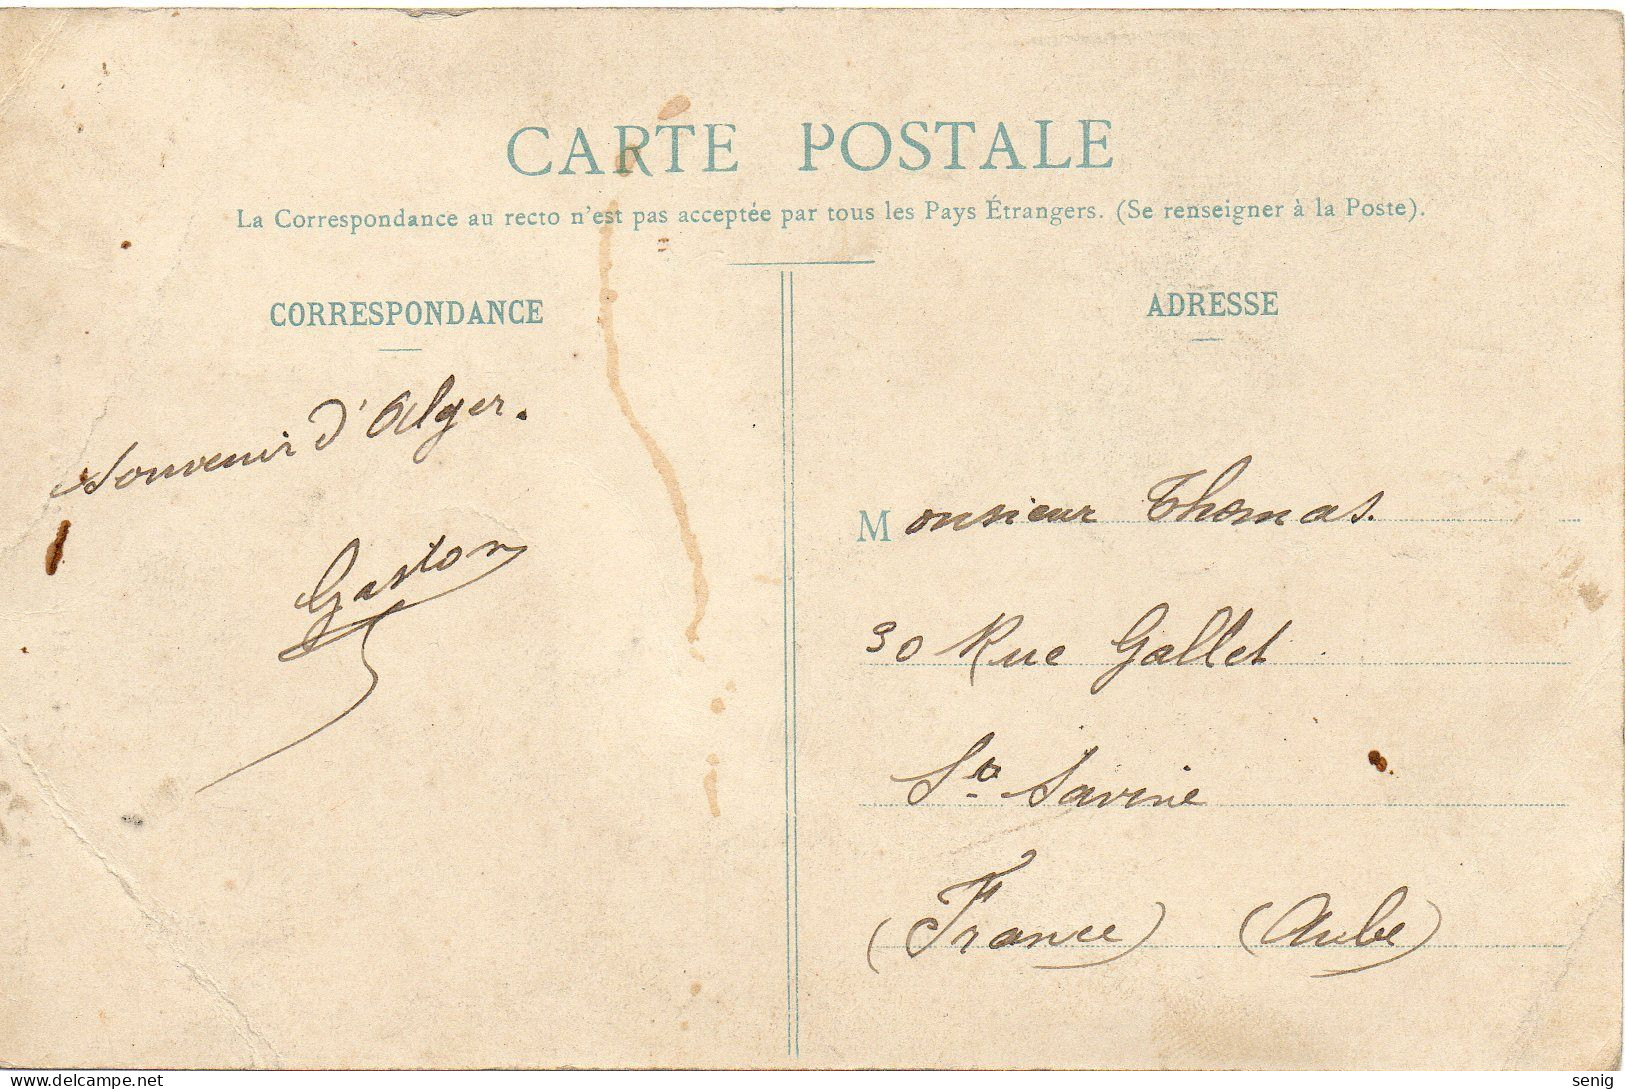 CARTE POSTALE
La Correspondance au recto n'est pas acceptée par tous les Pays Étrangers. (Se renseigner à la Poste).
CORRESPONDANCE
Souvenir d'Alger.
Gaston
ADRESSE
Monsieur Thomas.
30 Rue Gallet
Ste Savine
(France) (Aube)
www.delcampe.net
senig